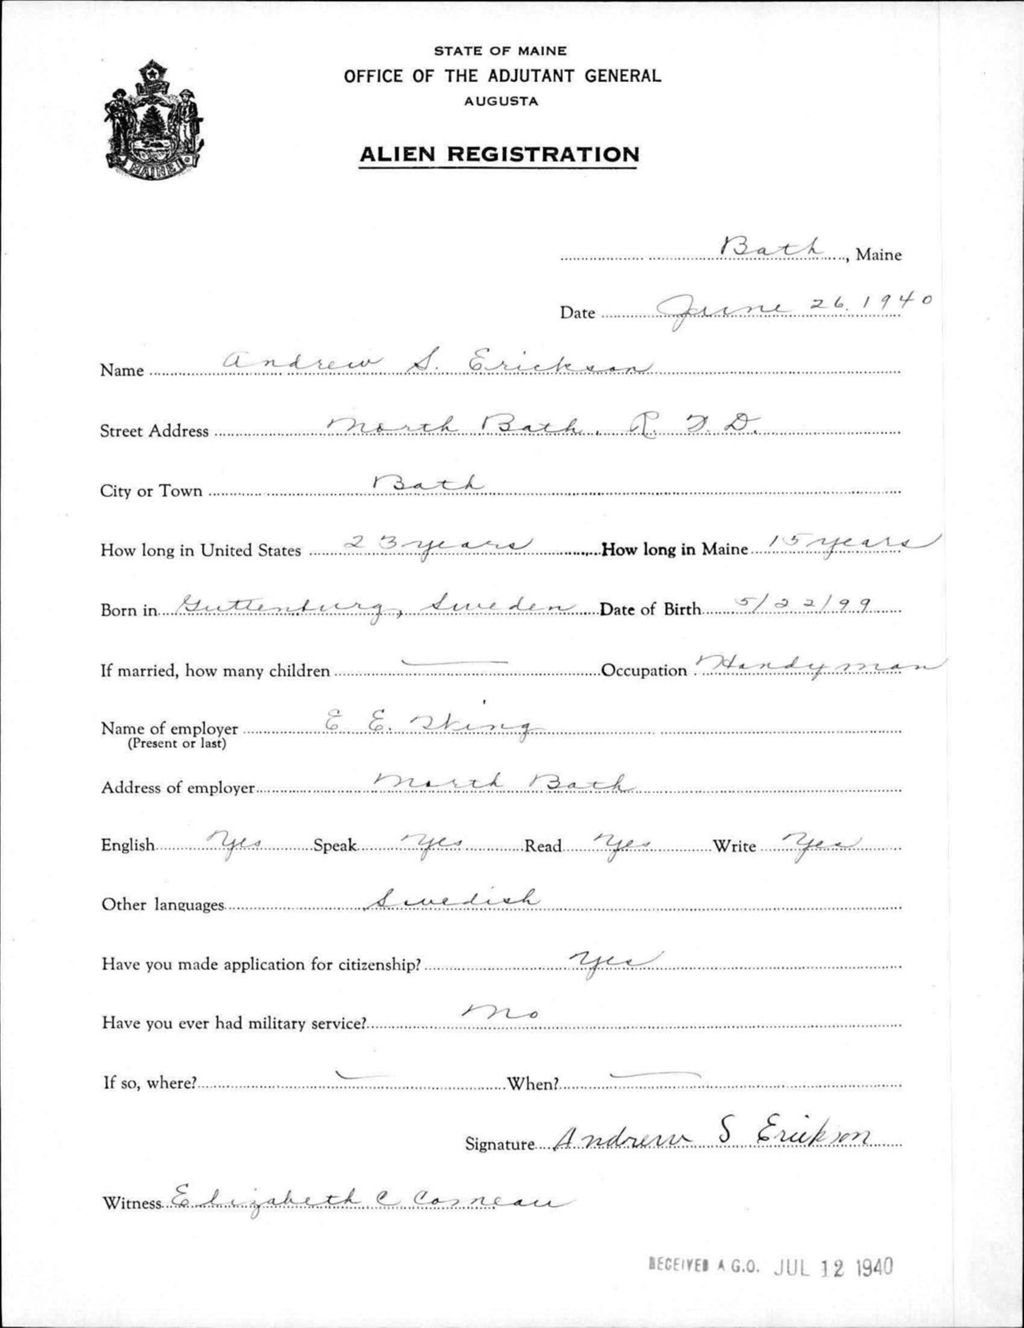 STATE OF MAINE
OFFICE OF THE ADJUTANT GENERAL
AUGUSTA
ALIEN REGISTRATION
MAINE
Bath, Maine
Date June 26, 1940
Name Andrew S. Erickson
Street Address North Bath, R. F. D.
City or Town Bath
How long in United States 23 years How long in Maine 15 years
Born in Guttenburg, Sweden Date of Birth 5/22/99
If married, how many children — Occupation Handyman
Name of employer E. E. Wing
(Present or last)
Address of employer North Bath
English Yes Speak Yes Read Yes Write Yes
Other languages Swedish
Have you made application for citizenship? Yes
Have you ever had military service? No
If so, where? — When? —
Signature Andrew S Erickson
Witness Elizabeth C Comeau
RECEIVED A.G.O. JUL 12 1940